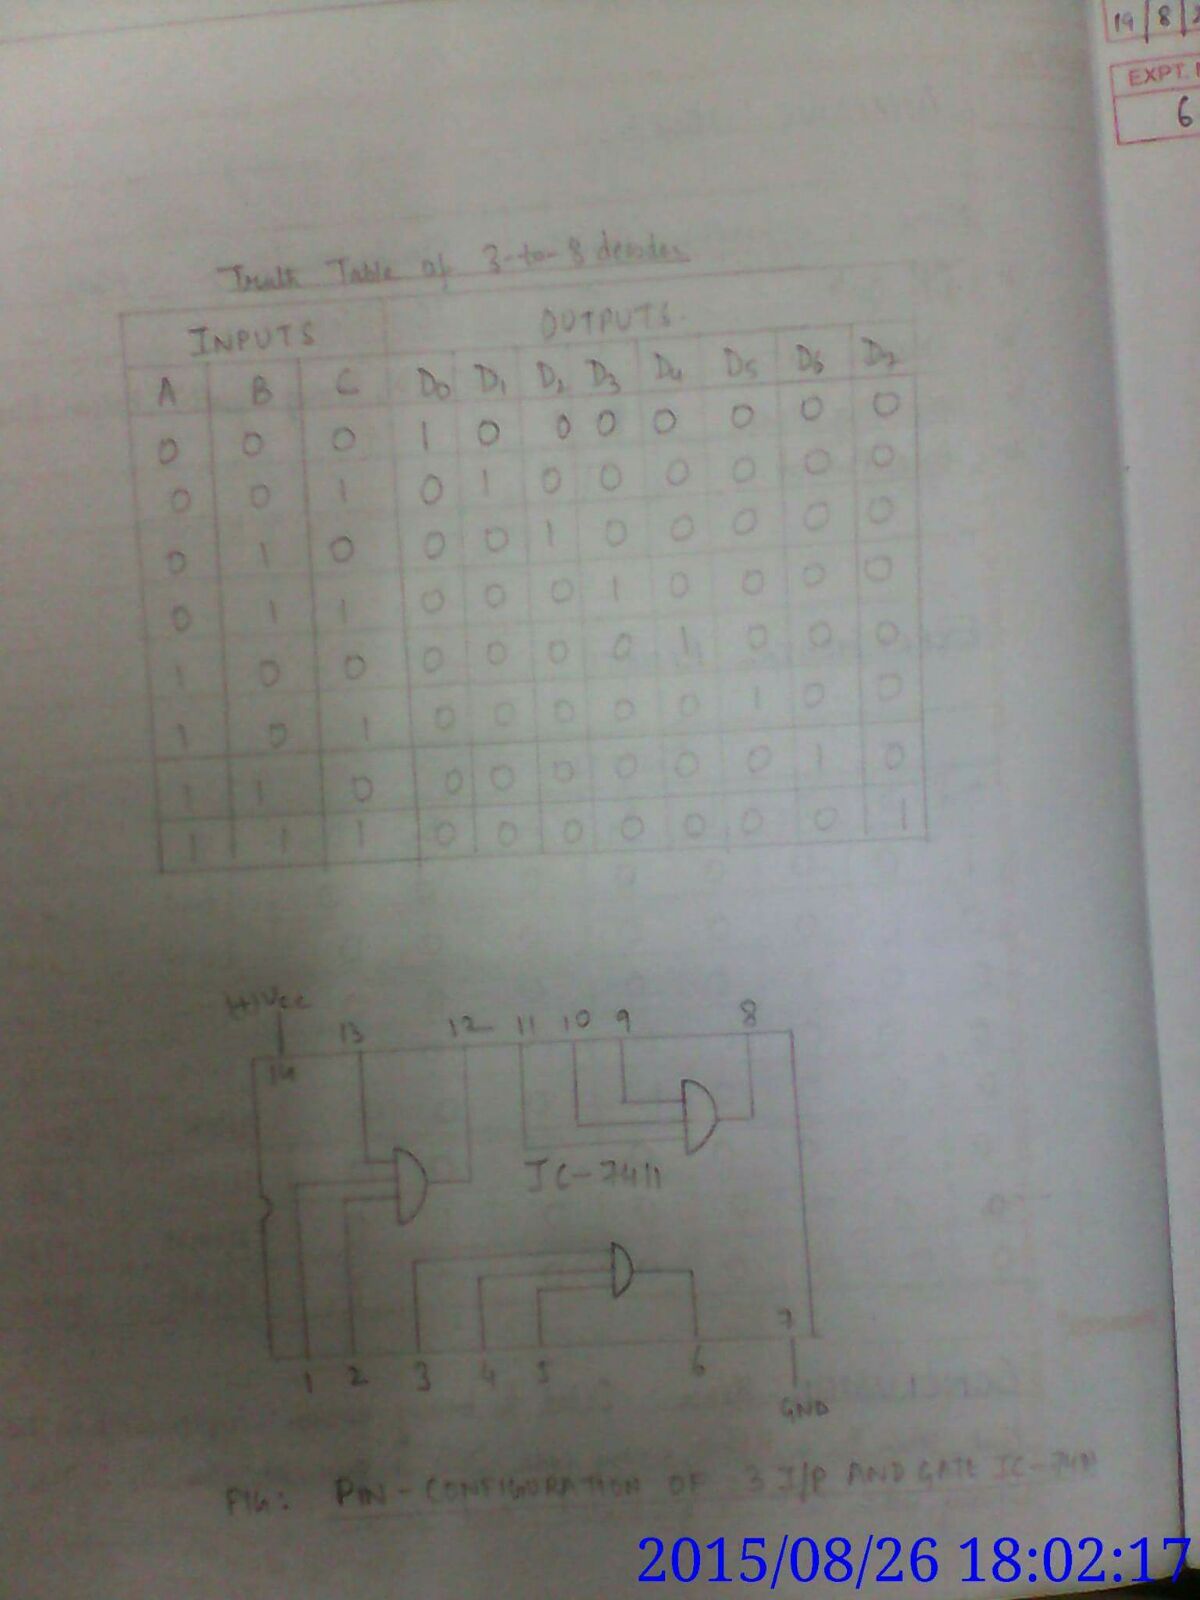 19 8
EXPT. N
6
Truth Table of 3-to-8 decoder
INPUTS OUTPUTS
A B C D0 D1 D2 D3 D4 D5 D6 D7
0 0 0 1 0 0 0 0 0 0 0
0 0 1 0 1 0 0 0 0 0 0
0 1 0 0 0 1 0 0 0 0 0
0 1 1 0 0 0 1 0 0 0 0
1 0 0 0 0 0 0 1 0 0 0
1 0 1 0 0 0 0 0 1 0 0
1 1 0 0 0 0 0 0 0 1 0
1 1 1 0 0 0 0 0 0 0 1
13 12 11 10 9 8
14
IC-7411
7
1 2 3 4 5 6
GND
FIG: PIN-CONFIGURATION OF 3 I/P AND GATE IC-7411
2015/08/26 18:02:17